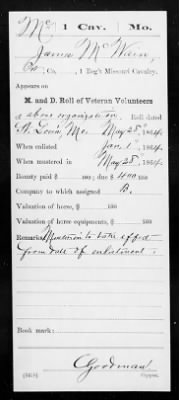 Mc 1 Cav. Mo.
James McWain,
Co., 1 Reg't Missouri Cavalry.
Appears on
M. and D. Roll of Veteran Volunteers
of above organization. Roll dated
St. Louis Mo. May 28, 1864.
When enlisted Jan. 1, 1864.
When mustered in May 28, 1864.
Bounty paid $ 100; due $ 400 100
Company to which assigned B.
Valuation of horse, $ 100
Valuation of horse equipments, $ 100
Remarks: Muster in to take effect
from date of enlistment.
Book mark:
Goodman
Copyist.